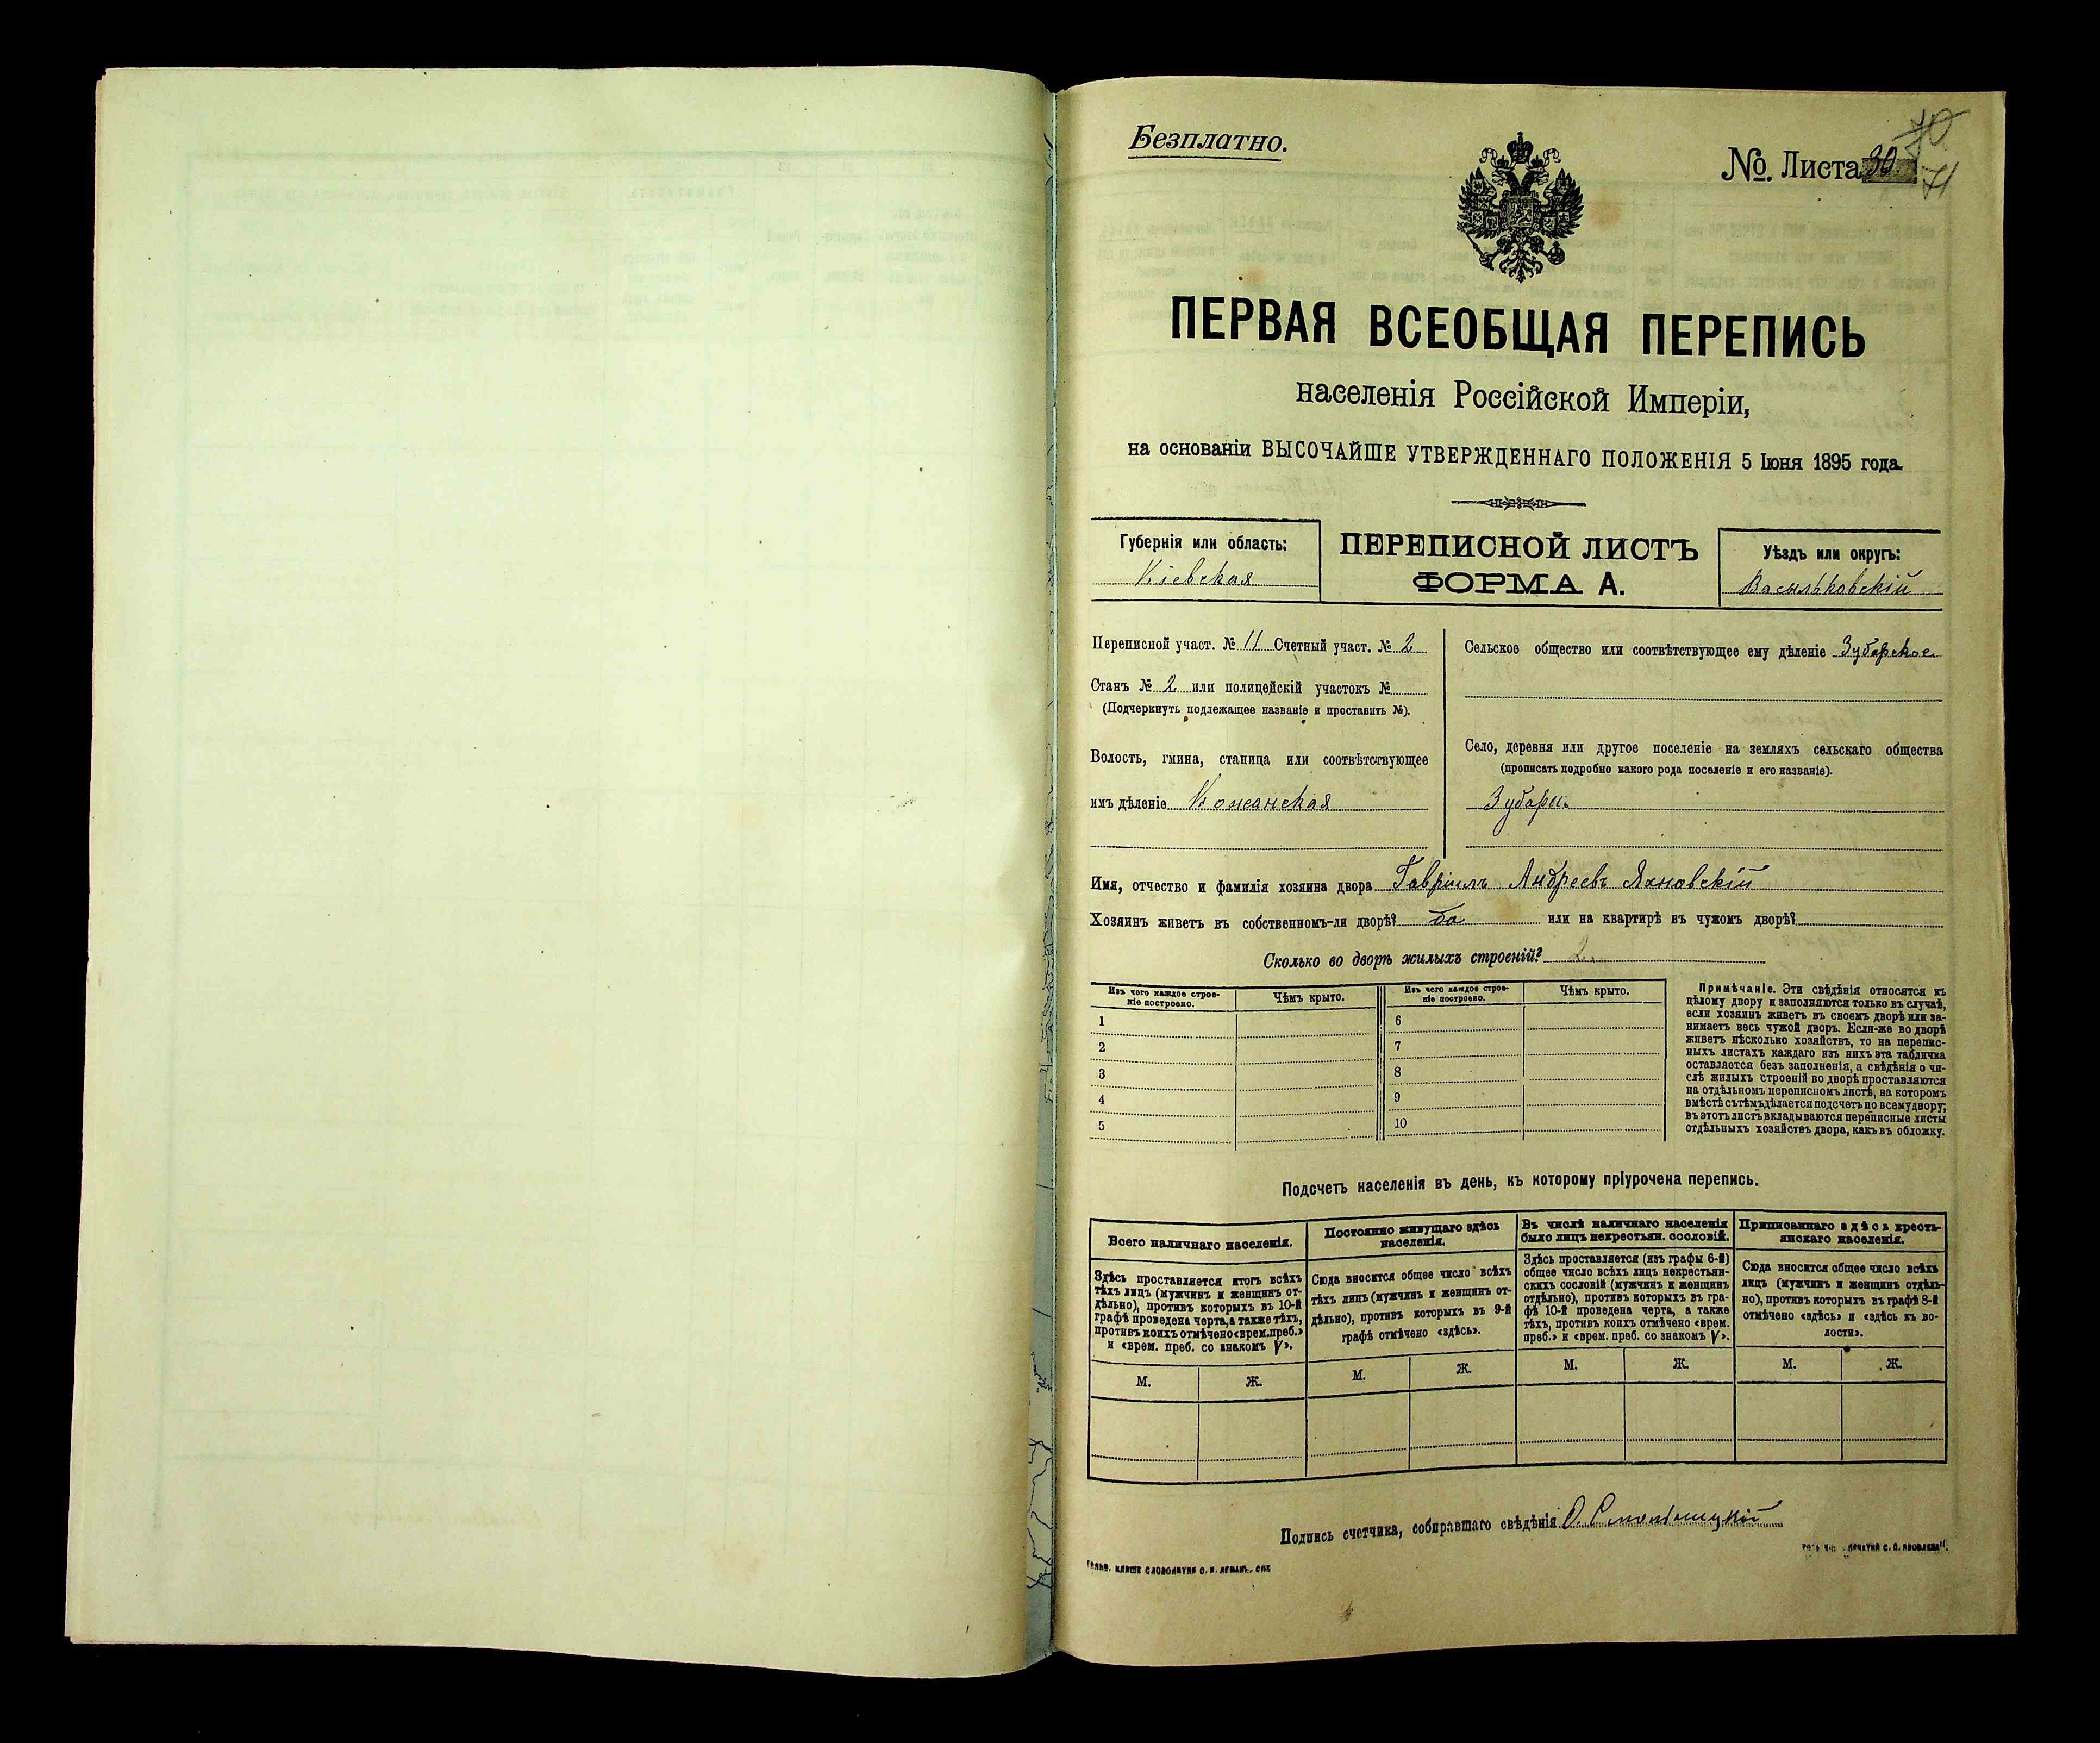 Безплатно.
№. Листа 30
70
71
ПЕРВАЯ ВСЕОБЩАЯ ПЕРЕПИСЬ
населенія Россійской Имперіи,
на основаніи ВЫСОЧАЙШЕ УТВЕРЖДЕННАГО ПОЛОЖЕНІЯ 5 Іюня 1895 года.
Губернія или область:
Кіевская
ПЕРЕПИСНОЙ ЛИСТЪ
ФОРМА А.
Уѣздъ или округъ:
Васильковскій
Переписной участ. № 11 Счетный участ. № 2
Станъ № 2 или полицейскій участокъ №
(Подчеркнуть подлежащее названіе и проставить №).
Волость, гмина, станица или соотвѣтствующее
имъ дѣленіе Кожанская
Сельское общество или соотвѣтствующее ему дѣленіе Зубарское
Село, деревня или другое поселеніе на земляхъ сельскаго общества
(прописать подробно какого рода поселеніе и его названіе).
Зубари.
Имя, отчество и фамилія хозяина двора Гавріилъ Андреевъ Яхновскій
Хозяинъ живетъ въ собственномъ-ли дворѣ? да или на квартирѣ въ чужомъ дворѣ?
Сколько во дворѣ жилыхъ строеній? 2.
Изъ чего каждое строе-
ніе построено.
Чѣмъ крыто.
Изъ чего каждое строе-
ніе построено.
Чѣмъ крыто.
1
2
3
4
5
6
7
8
9
10
Примѣчаніе. Эти свѣдѣнія относятся къ
цѣлому двору и заполняются только въ случаѣ,
если хозяинъ живетъ въ своемъ дворѣ или за-
нимаетъ весь чужой дворъ. Если-же во дворѣ
живетъ нѣсколько хозяйствъ, то на перепис-
ныхъ листахъ каждаго изъ нихъ эта табличка
оставляется безъ заполненія, а свѣдѣнія о чи-
слѣ жилыхъ строеній во дворѣ проставляются
на отдѣльномъ переписномъ листѣ, на которомъ
вмѣстѣ съ тѣмъ дѣлается подсчетъ по всему двору;
въ этотъ листъ вкладываются переписные листы
отдѣльныхъ хозяйствъ двора, какъ въ обложку.
Подсчетъ населенія въ день, къ которому пріурочена перепись.
Всего наличнаго населенія.
Здѣсь проставляется итогъ всѣхъ
тѣхъ лицъ (мужчинъ и женщинъ от-
дѣльно), противъ которыхъ въ 10-й
графѣ проведена черта, а также тѣхъ,
противъ коихъ отмѣчено «врем. преб.»
и «врем. преб. со знакомъ V».
М. Ж.
Постоянно живущаго здѣсь
населенія.
Сюда вносится общее число всѣхъ
тѣхъ лицъ (мужчинъ и женщинъ от-
дѣльно), противъ которыхъ въ 9-й
графѣ отмѣчено «здѣсь».
М. Ж.
Въ числѣ наличнаго населенія
было лицъ некрестьян. сословій.
Здѣсь проставляется (изъ графы 6-й)
общее число всѣхъ лицъ некрестьян-
скихъ сословій (мужчинъ и женщинъ
отдѣльно), противъ которыхъ въ гра-
фѣ 10-й проведена черта, а также
тѣхъ, противъ коихъ отмѣчено «врем.
преб.» и «врем. преб. со знакомъ V».
М. Ж.
Приписаннаго здѣсь кресть-
янскаго населенія.
Сюда вносится общее число всѣхъ
лицъ (мужчинъ и женщинъ отдѣль-
но), противъ которыхъ въ графѣ 8-й
отмѣчено «здѣсь» и «здѣсь къ во-
лости».
М. Ж.
Подпись счетчика, собиравшаго свѣдѣнія О.
КЛИШЕ СЛОВОЛИТНИ О. И. ЛЕМАНЪ, СПБ
ПЕЧАТНИ С. П. ЯКОВЛЕВА".